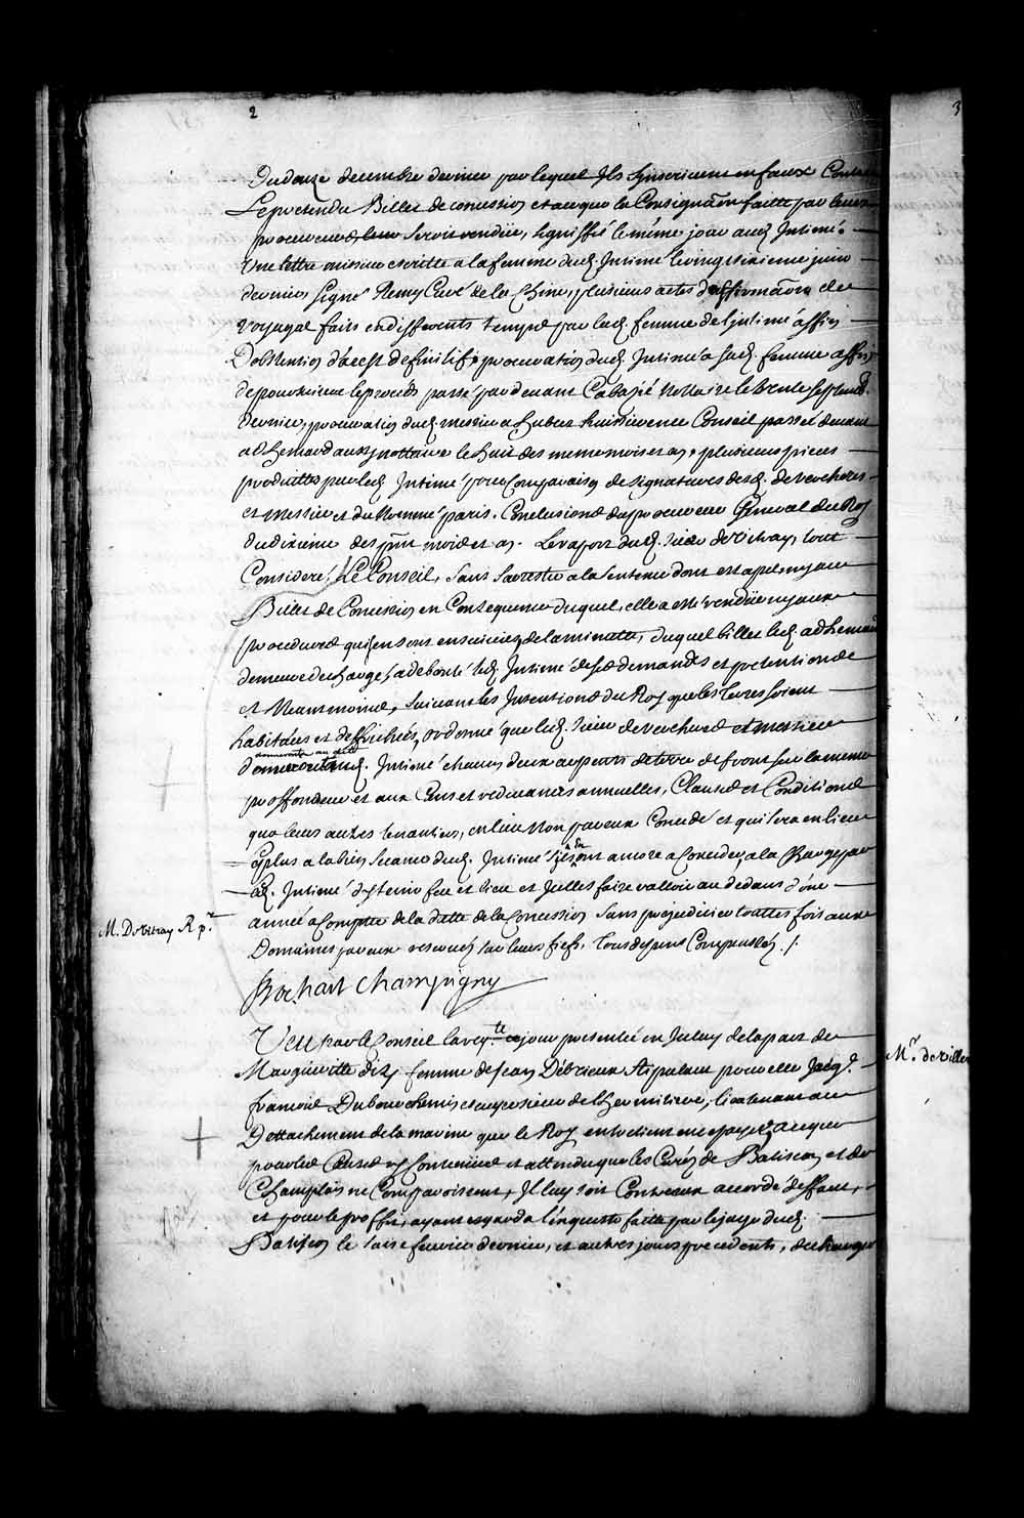 2
3
Du douze decembre dernier par lequel Ils s'inscrivent en faux Contre
Le pretendu Billet de concession et ace que la Consignãon faitte par leurs
procureurs leur seroit rendüe, signiffié le méme jour audᵗ Intimé.
Une lettre missive escritte a la femme dudᵗ Intimé le vingt sixieme juin
dernier, Signé Remy Curé de la Chine, plusieurs actes d'affirmãons de
voyages faits en differents temps par ladᵗ femme de l'Intimé affin
D'obtention d'arest definitif, procuration dudᵗ Intimé a sadᵗ femme affin
de poursuivre le procés passé pardevant Cabazié Nottaire le trente septemb.
dernier, procuration dudᵗ messier a hubert huissier en ce Conseil passée devant
adhemard aussy nottaire le huit des memes mois et an, plusieurs pieces
produittes par ledᵗ Intimé pour Comparaison de signatures desdᵗ de vercheres
et messier et du Nommé paris. Conclusions du procureur General du Roy
du dixieme des pñt mois et an. Le raport dudᵗ sieur de Vitray, tout
Consideré, Le Conseil, sans s'arrester a la sentence dont est apel, ny au
Billet de Concession en Consequence duquel, elle a esté rendüe ny aux
procedures qui s'en sont ensuivies, de la minutte, duquel billet ledᵗ adhemard
demeure dechargé, a debouté ledᵗ Intimé de ses demandes et pretentions
et Neantmoins, suivant les Intentions du Roy que les terres soient
habitées et deffrichées, ordonne que lesdᵗ sieur de verchere et messier
donneront au dit
Intimé chacun deux arpents de terre de front sur la meme
proffondeur et aux Cens et redevances annuelles, Clauses et Conditions
que leurs autres tenanciers, en lieu Non par eux Concedé et qui sera en lieu
plus a la bien seance dudᵗ Intimé s'ils en ont encore a Conceder, a la Charge par
ledᵗ Intimé d'y tenir feu et lieu et Icelles faire valloir au dedans d'une
année a Compter de la datte de la Concession sans prejudicier touttes fois aux
Domaines par eux reservés sur leurs fiefs, tous despens Compensés ./.
M. DeVitray R pʳ
Bochart Champigny
Veu par le Conseil la reqᵗᵉ ce jour presentée en Iceluy de la part de
Margueritte Dizy femme de Jean Débrieux stipulant pour elle Jacqˢ
françois Dubourchemin escuyer sieur de l'hermitiere, lieutenant au
Dettachement de la marine que le Roy entretient en ce pays, a ce que
pour les Causes y Contenües et attendu que les Curés de Batiscan et de
Champlain ne Comparoissent, Il luy soit Contr'eux accordé deffaut,
et pour le proffit, ayant esgard a l'enqueste faitte par le juge dudᵗ
Batiscan le seize fevrier dernier, et autres jours precedents, decharger
Mʳ de Viller